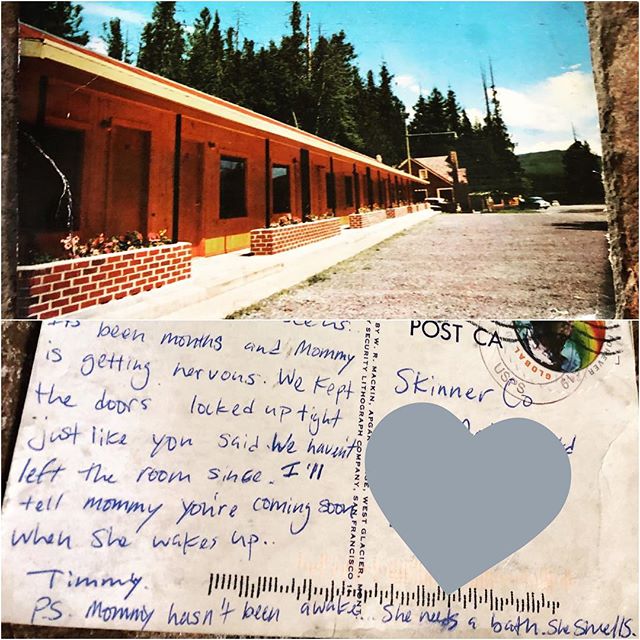 its been months and Mommy
is getting nervous. We kept
the doors locked up tight
just like you said. We haven't
left the room since. I'll
tell mommy you're coming soon
when she wakes up..
Timmy.
PS. Mommy hasn't been awake... She needs a bath. She smells.
BY W. R. MACKIN, APGAR
WEST GLACIER, MONT
SECURITY LITHOGRAPH COMPANY, SAN FRANCISCO
POST CA
GLOBAL
USPS
Skinner Co